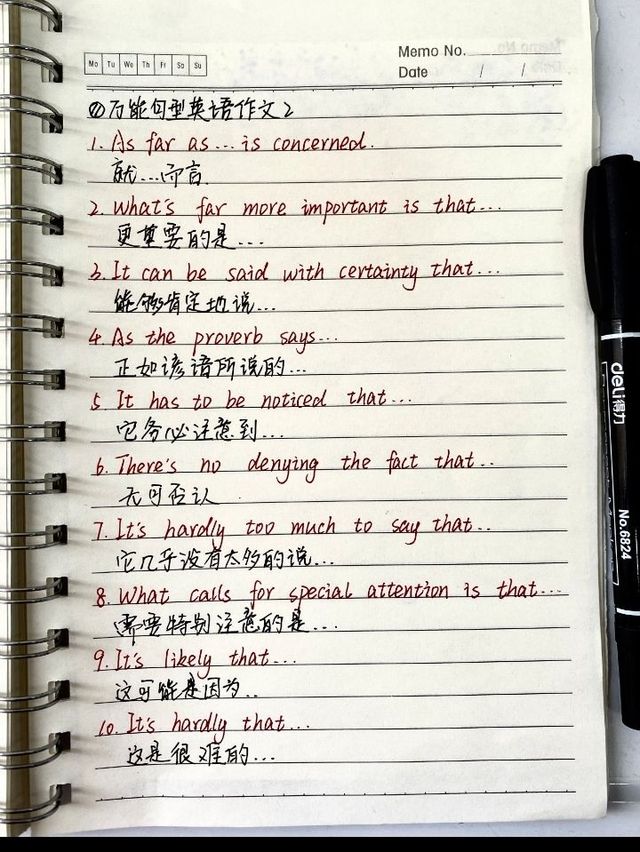 Mo Tu We Th Fr Sa Su
Memo No.
Date / /
②万能句型英语作文2
1. As far as... is concerned.
就...而言
2. What's far more important is that...
更重要的是...
3. It can be said with certainty that...
能够肯定地说...
4. As the proverb says...
正如谚语所说的...
5. It has to be noticed that...
它务必注意到...
6. There's no denying the fact that..
无可否认
7. It's hardly too much to say that..
它几乎没有太多的说...
8. What calls for special attention is that...
需要特别注意的是...
9. It's likely that...
这可能是因为..
10. It's hardly that...
这是很难的...
deli得力
No.6824